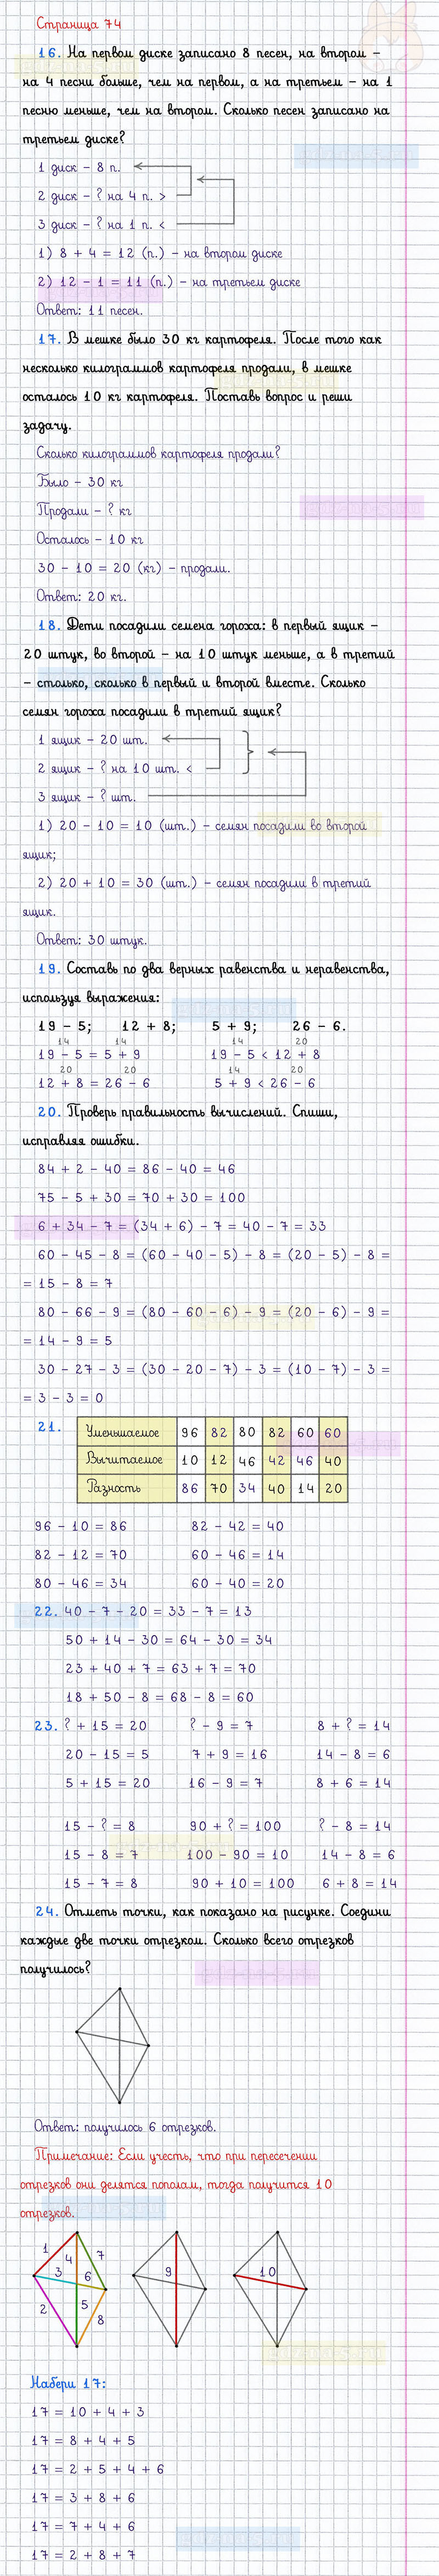 Страница 74
16. На первом диске записано 8 песен, на втором –
на 4 песни больше, чем на первом, а на третьем – на 1
песню меньше, чем на втором. Сколько песен записано на
третьем диске?
1 диск – 8 п.
2 диск – ? на 4 п. >
3 диск – ? на 1 п. <
1) 8 + 4 = 12 (п.) – на втором диске
2) 12 – 1 = 11 (п.) – на третьем диске
Ответ: 11 песен.
17. В мешке было 30 кг картофеля. После того как
несколько килограммов картофеля продали, в мешке
осталось 10 кг картофеля. Поставь вопрос и реши
задачу.
Сколько килограммов картофеля продали?
Было – 30 кг
Продали – ? кг
Осталось – 10 кг
30 – 10 = 20 (кг) – продали.
Ответ: 20 кг.
18. Дети посадили семена гороха: в первый ящик –
20 штук, во второй – на 10 штук меньше, а в третий
– столько, сколько в первый и второй вместе. Сколько
семян гороха посадили в третий ящик?
1 ящик – 20 шт.
2 ящик – ? на 10 шт. <
3 ящик – ? шт.
1) 20 – 10 = 10 (шт.) – семян посадили во второй
ящик;
2) 20 + 10 = 30 (шт.) – семян посадили в третий
ящик.
Ответ: 30 штук.
19. Составь по два верных равенства и неравенства,
используя выражения:
19 – 5; 12 + 8; 5 + 9; 26 – 6.
14 14 14 20
19 – 5 = 5 + 9 19 – 5 < 12 + 8
20 20 14 20
12 + 8 = 26 – 6 5 + 9 < 26 – 6
20. Проверь правильность вычислений. Спиши,
исправляя ошибки.
84 + 2 – 40 = 86 – 40 = 46
75 – 5 + 30 = 70 + 30 = 100
6 + 34 – 7 = (34 + 6) – 7 = 40 – 7 = 33
60 – 45 – 8 = (60 – 40 – 5) – 8 = (20 – 5) – 8 =
= 15 – 8 = 7
80 – 66 – 9 = (80 – 60 – 6) – 9 = (20 – 6) – 9 =
= 14 – 9 = 5
30 – 27 – 3 = (30 – 20 – 7) – 3 = (10 – 7) – 3 =
= 3 – 3 = 0
21. Уменьшаемое 96 82 80 82 60 60
Вычитаемое 10 12 46 42 46 40
Разность 86 70 34 40 14 20
96 – 10 = 86 82 – 42 = 40
82 – 12 = 70 60 – 46 = 14
80 – 46 = 34 60 – 40 = 20
22. 40 – 7 – 20 = 33 – 7 = 13
50 + 14 – 30 = 64 – 30 = 34
23 + 40 + 7 = 63 + 7 = 70
18 + 50 – 8 = 68 – 8 = 60
23. ? + 15 = 20 ? – 9 = 7 8 + ? = 14
20 – 15 = 5 7 + 9 = 16 14 – 8 = 6
5 + 15 = 20 16 – 9 = 7 8 + 6 = 14
15 – ? = 8 90 + ? = 100 ? – 8 = 14
15 – 8 = 7 100 – 90 = 10 14 – 8 = 6
15 – 7 = 8 90 + 10 = 100 6 + 8 = 14
24. Отметь точки, как показано на рисунке. Соедини
каждые две точки отрезком. Сколько всего отрезков
получилось?
Ответ: получилось 6 отрезков.
Примечание: Если учесть, что при пересечении
отрезков они делятся пополам, тогда получится 10
отрезков.
1 4 7 3 6 2 5 8
9
10
Набери 17:
17 = 10 + 4 + 3
17 = 8 + 4 + 5
17 = 2 + 5 + 4 + 6
17 = 3 + 8 + 6
17 = 7 + 4 + 6
17 = 2 + 8 + 7